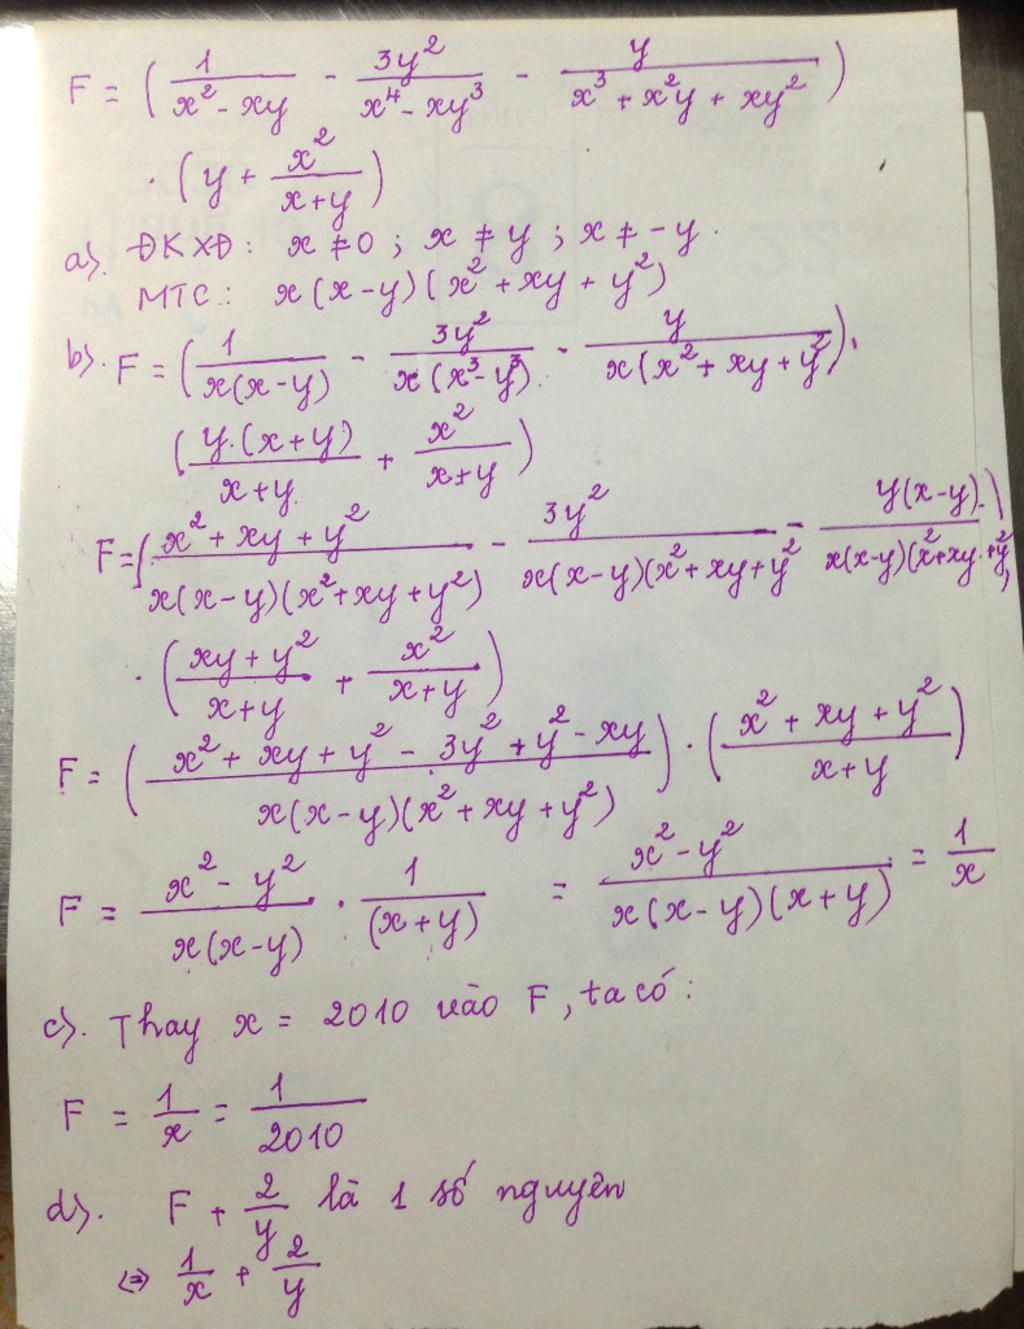 F = ( 1/(x² - xy) - 3y²/(x⁴ - xy³) - y/(x³ + x²y + xy²) )
. ( y + x²/(x+y) )
a). ĐKXĐ: x ≠ 0 ; x ≠ y ; x ≠ -y.
MTC: x(x-y)(x² + xy + y²)
b). F = ( 1/(x(x-y)) - 3y²/(x(x³-y³)) - y/(x(x² + xy + y²)) ).
( y.(x+y)/(x+y) + x²/(x+y) )
F = ( (x² + xy + y²)/(x(x-y)(x²+xy+y²)) - 3y²/(x(x-y)(x²+xy+y²)) - y(x-y)/(x(x-y)(x²+xy+y²)) )
. ( (xy + y²)/(x+y) + x²/(x+y) )
F = ( (x² + xy + y² - 3y² + y² - xy)/(x(x-y)(x² + xy + y²)) ) . ( (x² + xy + y²)/(x+y) )
F = (x² - y²)/(x(x-y)) . 1/(x+y) = (x² - y²)/(x(x-y)(x+y)) = 1/x
c). Thay x = 2010 vào F, ta có:
F = 1/x = 1/2010
d). F + 2/y là 1 số nguyên
⇔ 1/x + 2/y